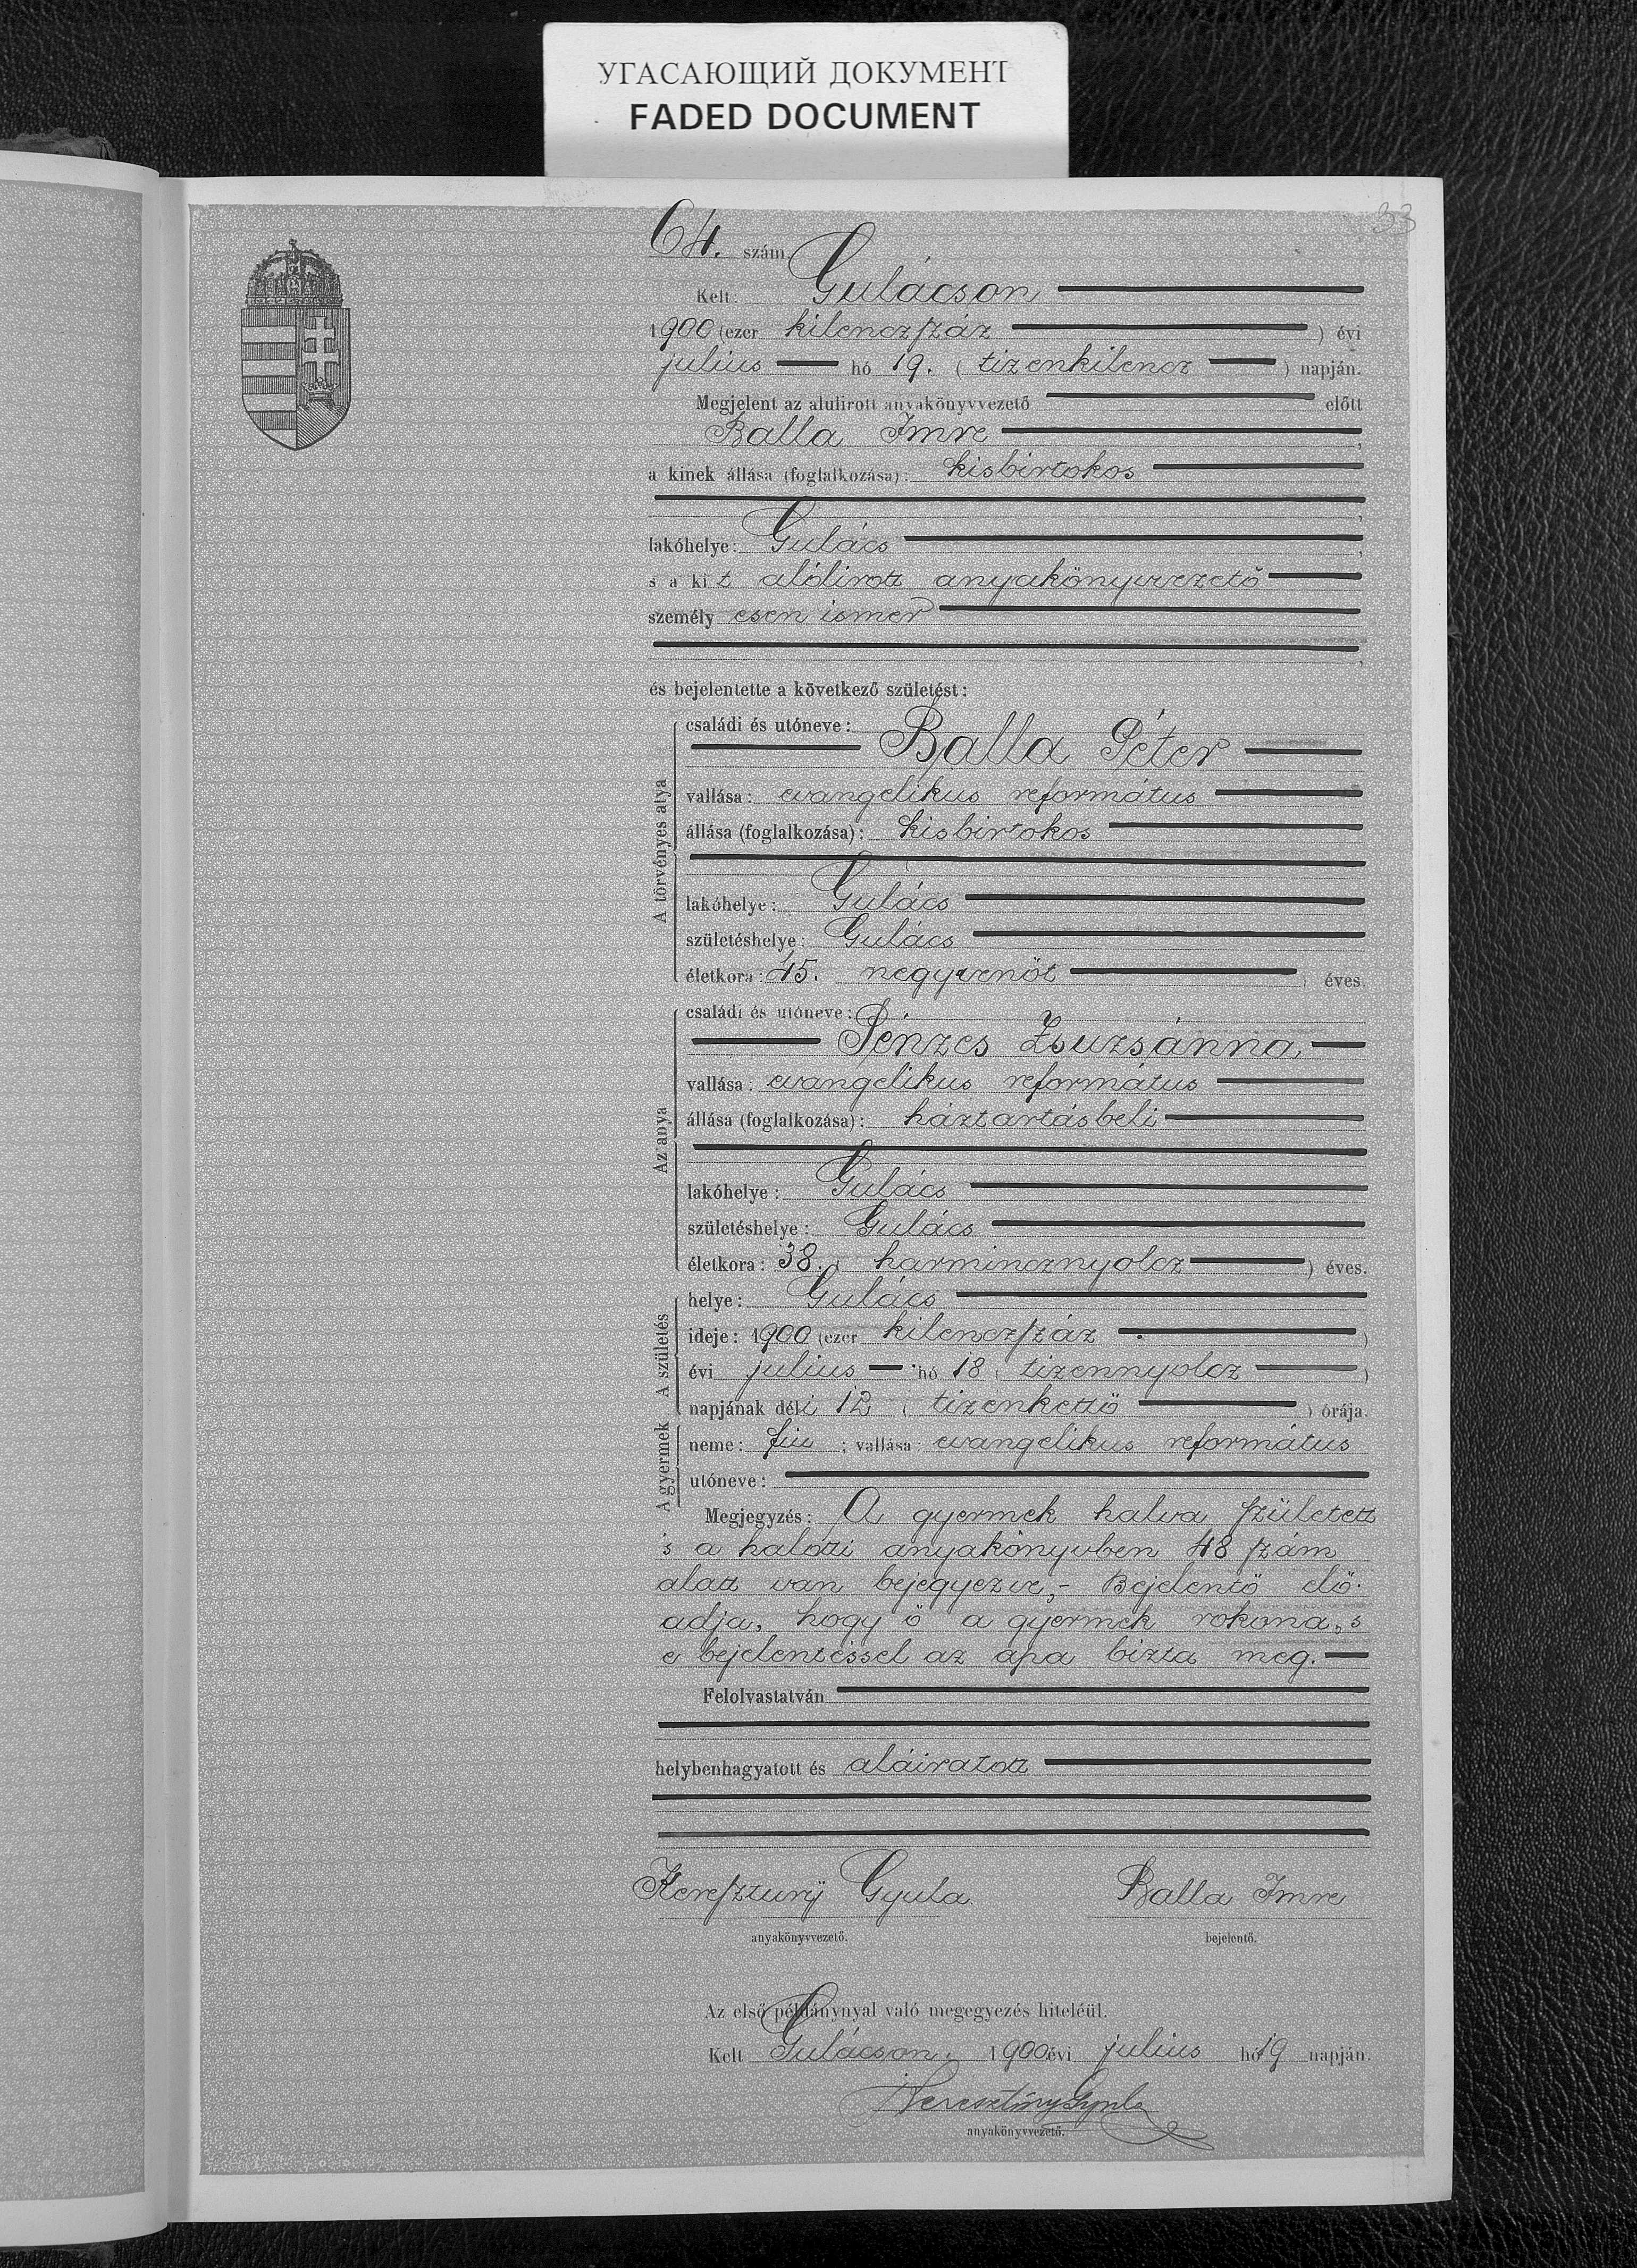 УГАСАЮЩИЙ ДОКУМЕНТ
FADED DOCUMENT
33
64. szám.
Kelt: Gulácson
1900 (ezer kilenczszáz ) évi
julius hó 19. ( tizenkilencz ) napján.
Megjelent az alulirott anyakönyvvezető előtt
Balla Imre,
a kinek állása (foglalkozása): kisbirtokos
,
lakóhelye: Gulács,
s a kit alólirott anyakönyvvezető
személyesen ismer
,
és bejelentette a következő születést:
A törvényes atya
családi és utóneve:
Balla Péter
vallása: evangelikus református
állása (foglalkozása): kisbirtokos
lakóhelye: Gulács
születéshelye: Gulács
életkora: 45. negyvenöt ) éves.
Az anya
családi és utóneve:
Pénzes Zsuzsánna
vallása: evangelikus református
állása (foglalkozása): háztartásbeli
lakóhelye: Gulács
születéshelye: Gulács
életkora: 38. ( harmincznyolcz ) éves.
A születés
helye: Gulács
ideje: 1900 (ezer kilenczszáz )
évi julius hó 18 ( tizennyolcz )
napjának déli 12 ( tizenkettő ) órája.
A gyermek
neme: fiu ; vallása: evangelikus református
utóneve:
Megjegyzés: A gyermek halva született
s a halotti anyakönyvben 48 szám
alatt van bejegyezve,- Bejelentő elő-
adja, hogy ő a gyermek rokona, s
e bejelentéssel az apa bizta meg.
Felolvastatván
helybenhagyatott és aláiratott
Kereszturÿ Gyula Balla Imre
anyakönyvvezető. bejelentő.
Az első példánynyal való megegyezés hiteléül.
Kelt Gulácson, 1900 évi julius hó 19 napján.
Keresztúry Gyula
anyakönyvvezető.